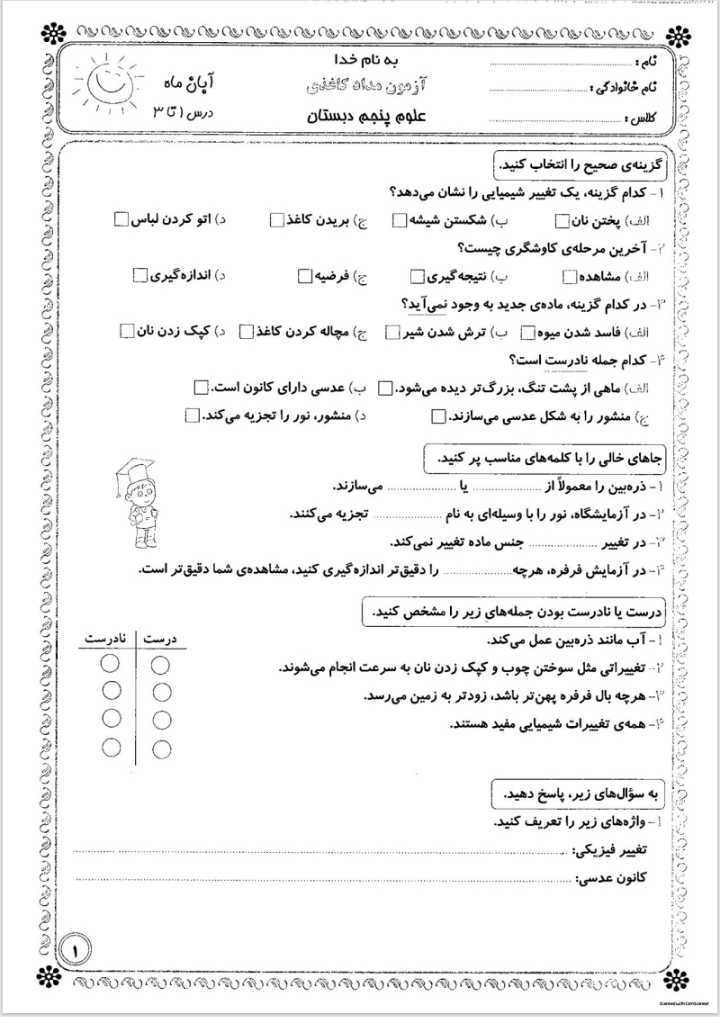 به نام خدا
آزمون مداد کاغذی
علوم پنجم دبستان
نام :
نام خانوادگی :
کلاس :
آبان ماه
درس ۱ تا ۳
گزینه‌ی صحیح را انتخاب کنید.
۱- کدام گزینه، یک تغییر شیمیایی را نشان می‌دهد؟
الف) پختن نان □ ب) شکستن شیشه □ ج) بریدن کاغذ □ د) اتو کردن لباس □
۲- آخرین مرحله‌ی کاوشگری چیست؟
الف) مشاهده □ ب) نتیجه‌گیری □ ج) فرضیه □ د) اندازه‌گیری □
۳- در کدام گزینه، ماده‌ی جدید به وجود نمی‌آید؟
الف) فاسد شدن میوه □ ب) ترش شدن شیر □ ج) مچاله کردن کاغذ □ د) کپک زدن نان □
۴- کدام جمله نادرست است؟
الف) ماهی از پشت تنگ، بزرگ‌تر دیده می‌شود. □ ب) عدسی دارای کانون است. □
ج) منشور را به شکل عدسی می‌سازند. □ د) منشور، نور را تجزیه می‌کند. □
جاهای خالی را با کلمه‌های مناسب پر کنید.
۱- ذره‌بین را معمولاً از .................. یا .................. می‌سازند.
۲- در آزمایشگاه، نور را با وسیله‌ای به نام .................. تجزیه می‌کنند.
۳- در تغییر .................. جنس ماده تغییر نمی‌کند.
۴- در آزمایش فرفره، هرچه.................. را دقیق‌تر اندازه‌گیری کنید، مشاهده‌ی شما دقیق‌تر است.
درست یا نادرست بودن جمله‌های زیر را مشخص کنید.
درست نادرست
۱- آب مانند ذره‌بین عمل می‌کند.
۲- تغییراتی مثل سوختن چوب و کپک زدن نان به سرعت انجام می‌شوند.
۳- هرچه بال فرفره پهن‌تر باشد، زودتر به زمین می‌رسد.
۴- همه‌ی تغییرات شیمیایی مفید هستند.
به سؤال‌های زیر، پاسخ دهید.
۱- واژه‌های زیر را تعریف کنید.
تغییر فیزیکی:
کانون عدسی:
۱